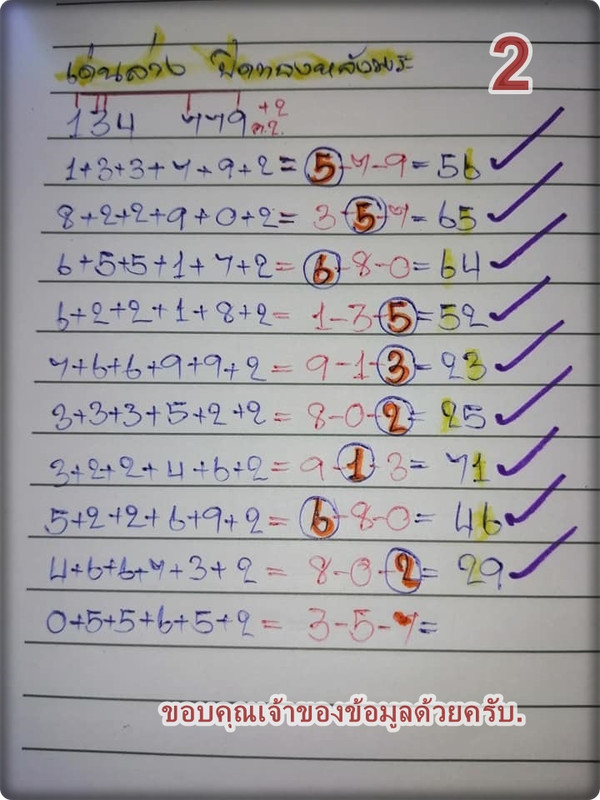 2
เด่นล่าง ปิดทองหลังพระ
134 779 +2
ค.ที่.
1+3+3+7+9+2= 5-7-9= 56
8+2+2+9+0+2= 3-5-7= 65
6+5+5+1+7+2= 6-8-0= 64
6+2+2+1+8+2= 1-3-5= 52
7+6+6+9+9+2= 9-1-3= 23
3+3+3+5+2+2= 8-0-2= 25
3+2+2+4+6+2= 9-1-3= 71
5+2+2+6+9+2= 6-8-0= 46
4+6+6+7+3+2= 8-0-2= 29
0+5+5+6+5+2= 3-5-7=
ขอบคุณเจ้าของข้อมูลด้วยครับ.